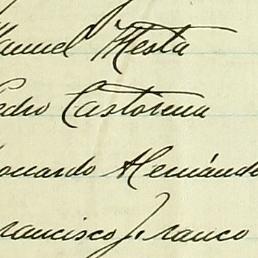 anuel Mesta
edro Castorena
onardo Hernánd
rancisco J. Franco